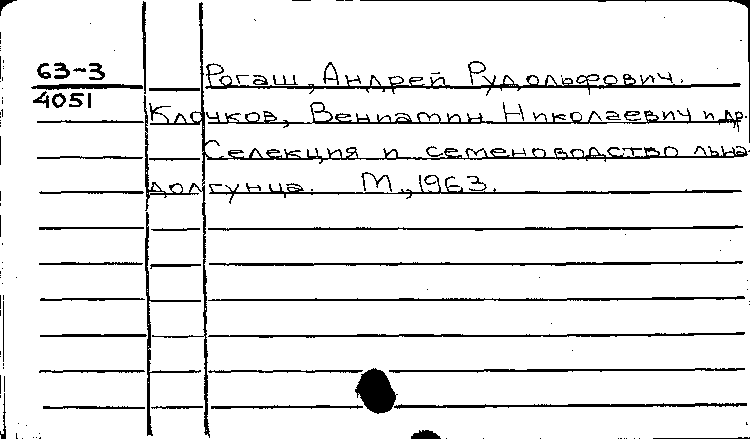 63-3 Рогаш, Андрей Рудольфович.
4051 Клочков, Вениамин Николаевич и др.
Селекция и семеноводство льна-
долгунца. М., 1963.